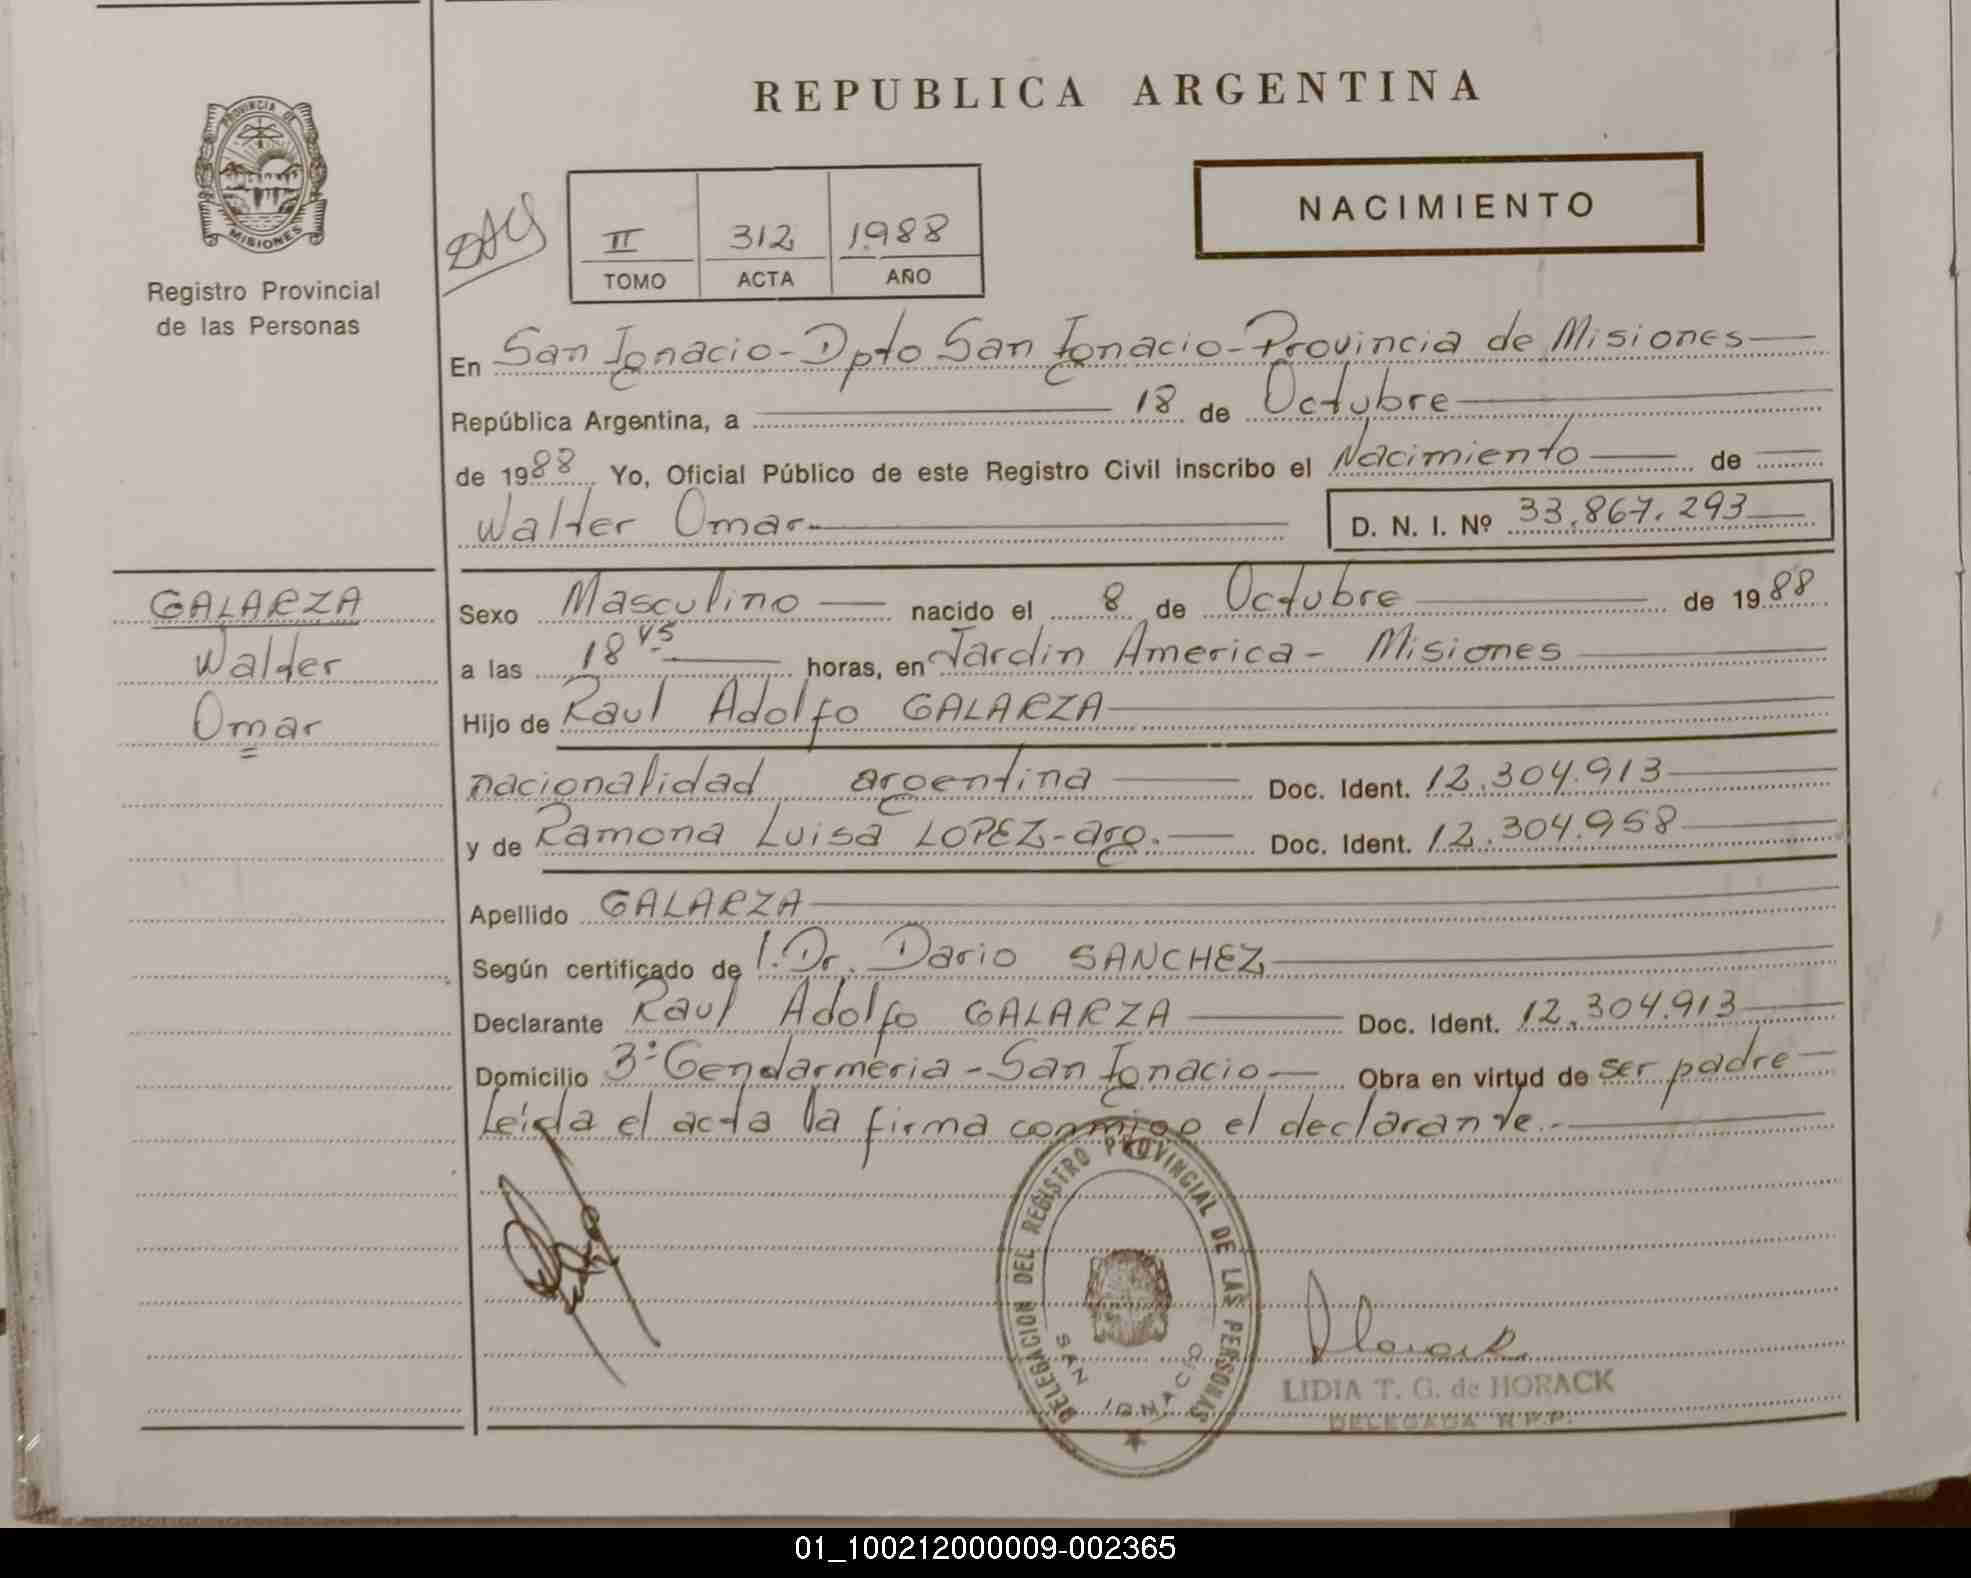 REPUBLICA ARGENTINA
PROVINCIA DE
MISIONES
Registro Provincial
de las Personas
II 312 1988
TOMO ACTA AÑO
NACIMIENTO
En San Ignacio - Dpto San Ignacio - Provincia de Misiones
República Argentina, a 18 de Octubre
de 1988 Yo, Oficial Público de este Registro Civil inscribo el Nacimiento de
Walter Omar D. N. I. Nº 33.867.293
GALARZA
Walter
Omar
Sexo Masculino nacido el 8 de Octubre de 1988
a las 18 45 horas, en Jardin America - Misiones
Hijo de Raul Adolfo GALARZA
nacionalidad argentina Doc. Ident. 12.304.913
y de Ramona Luisa LOPEZ - arg. Doc. Ident. 12.304.958
Apellido GALARZA
Según certificado de l. Dr. Dario SANCHEZ
Declarante Raul Adolfo GALARZA Doc. Ident. 12.304.913
Domicilio 3º Gendarmeria - San Ignacio Obra en virtud de ser padre
Leída el acta la firma conmigo el declarante.
DELEGACION DEL REGISTRO PROVINCIAL DE LAS PERSONAS
SAN IGNACIO
LIDIA T. G. de HORACK
DELEGADA R.P.P.
01_100212000009-002365